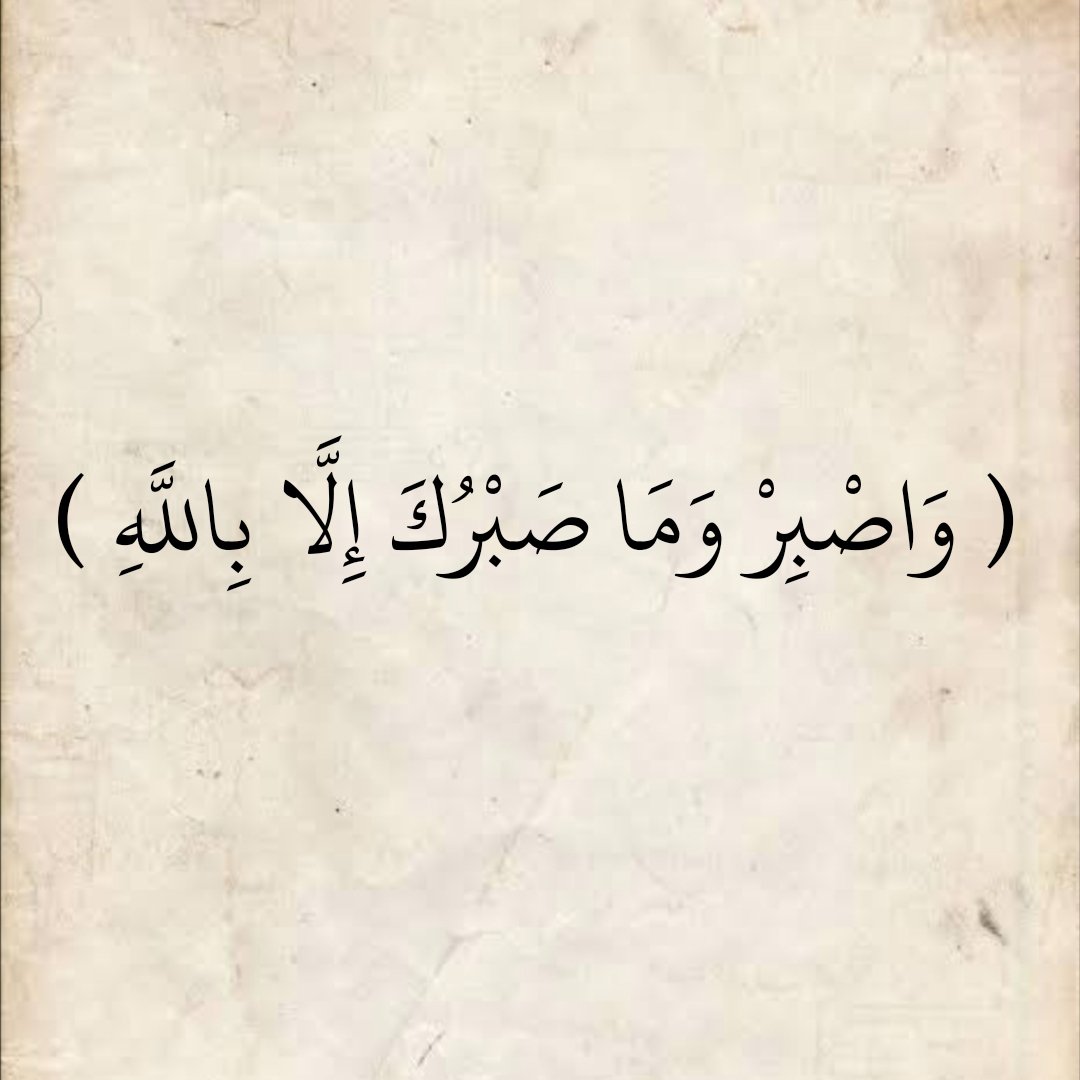 ( وَاصْبِرْ وَمَا صَبْرُكَ إِلَّا بِاللَّهِ )